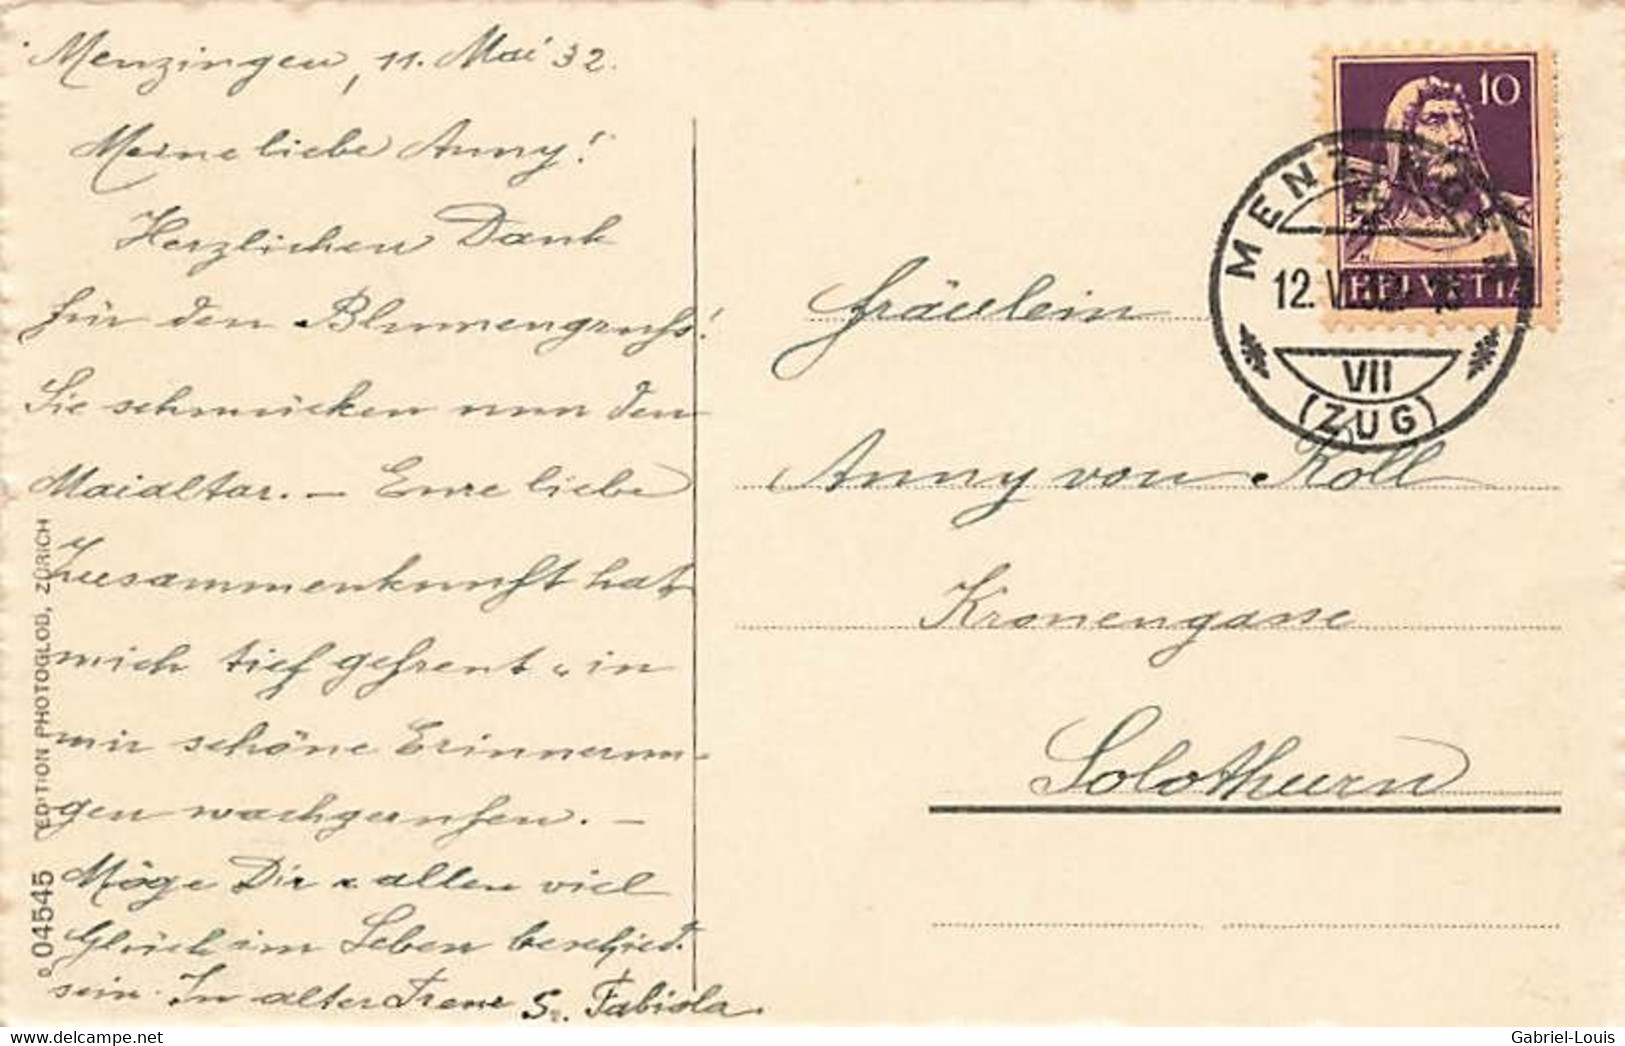 Menzingen, 11. Mai 32.
Meine liebe Anny!
Herzlichen Dank
für den Blumengruss!
Sie schmücken nun den
Maialtar. – Eure liebe
Zusammenkunft hat
mich tief gefreut u. in
mir schöne Erinnerun-
gen wachgerufen. –
Möge Dir u. allen viel
Glück im Leben beschied.
sein. In alter Treue Sr. Fabiola.
° 04545 EDITION PHOTOGLOB, ZÜRICH
10
HELVETIA
MENZINGEN
12. V. 32
VII
(ZUG)
Fräulein
Anny von Roll
Kronengasse
Solothurn
Gabriel-Louis